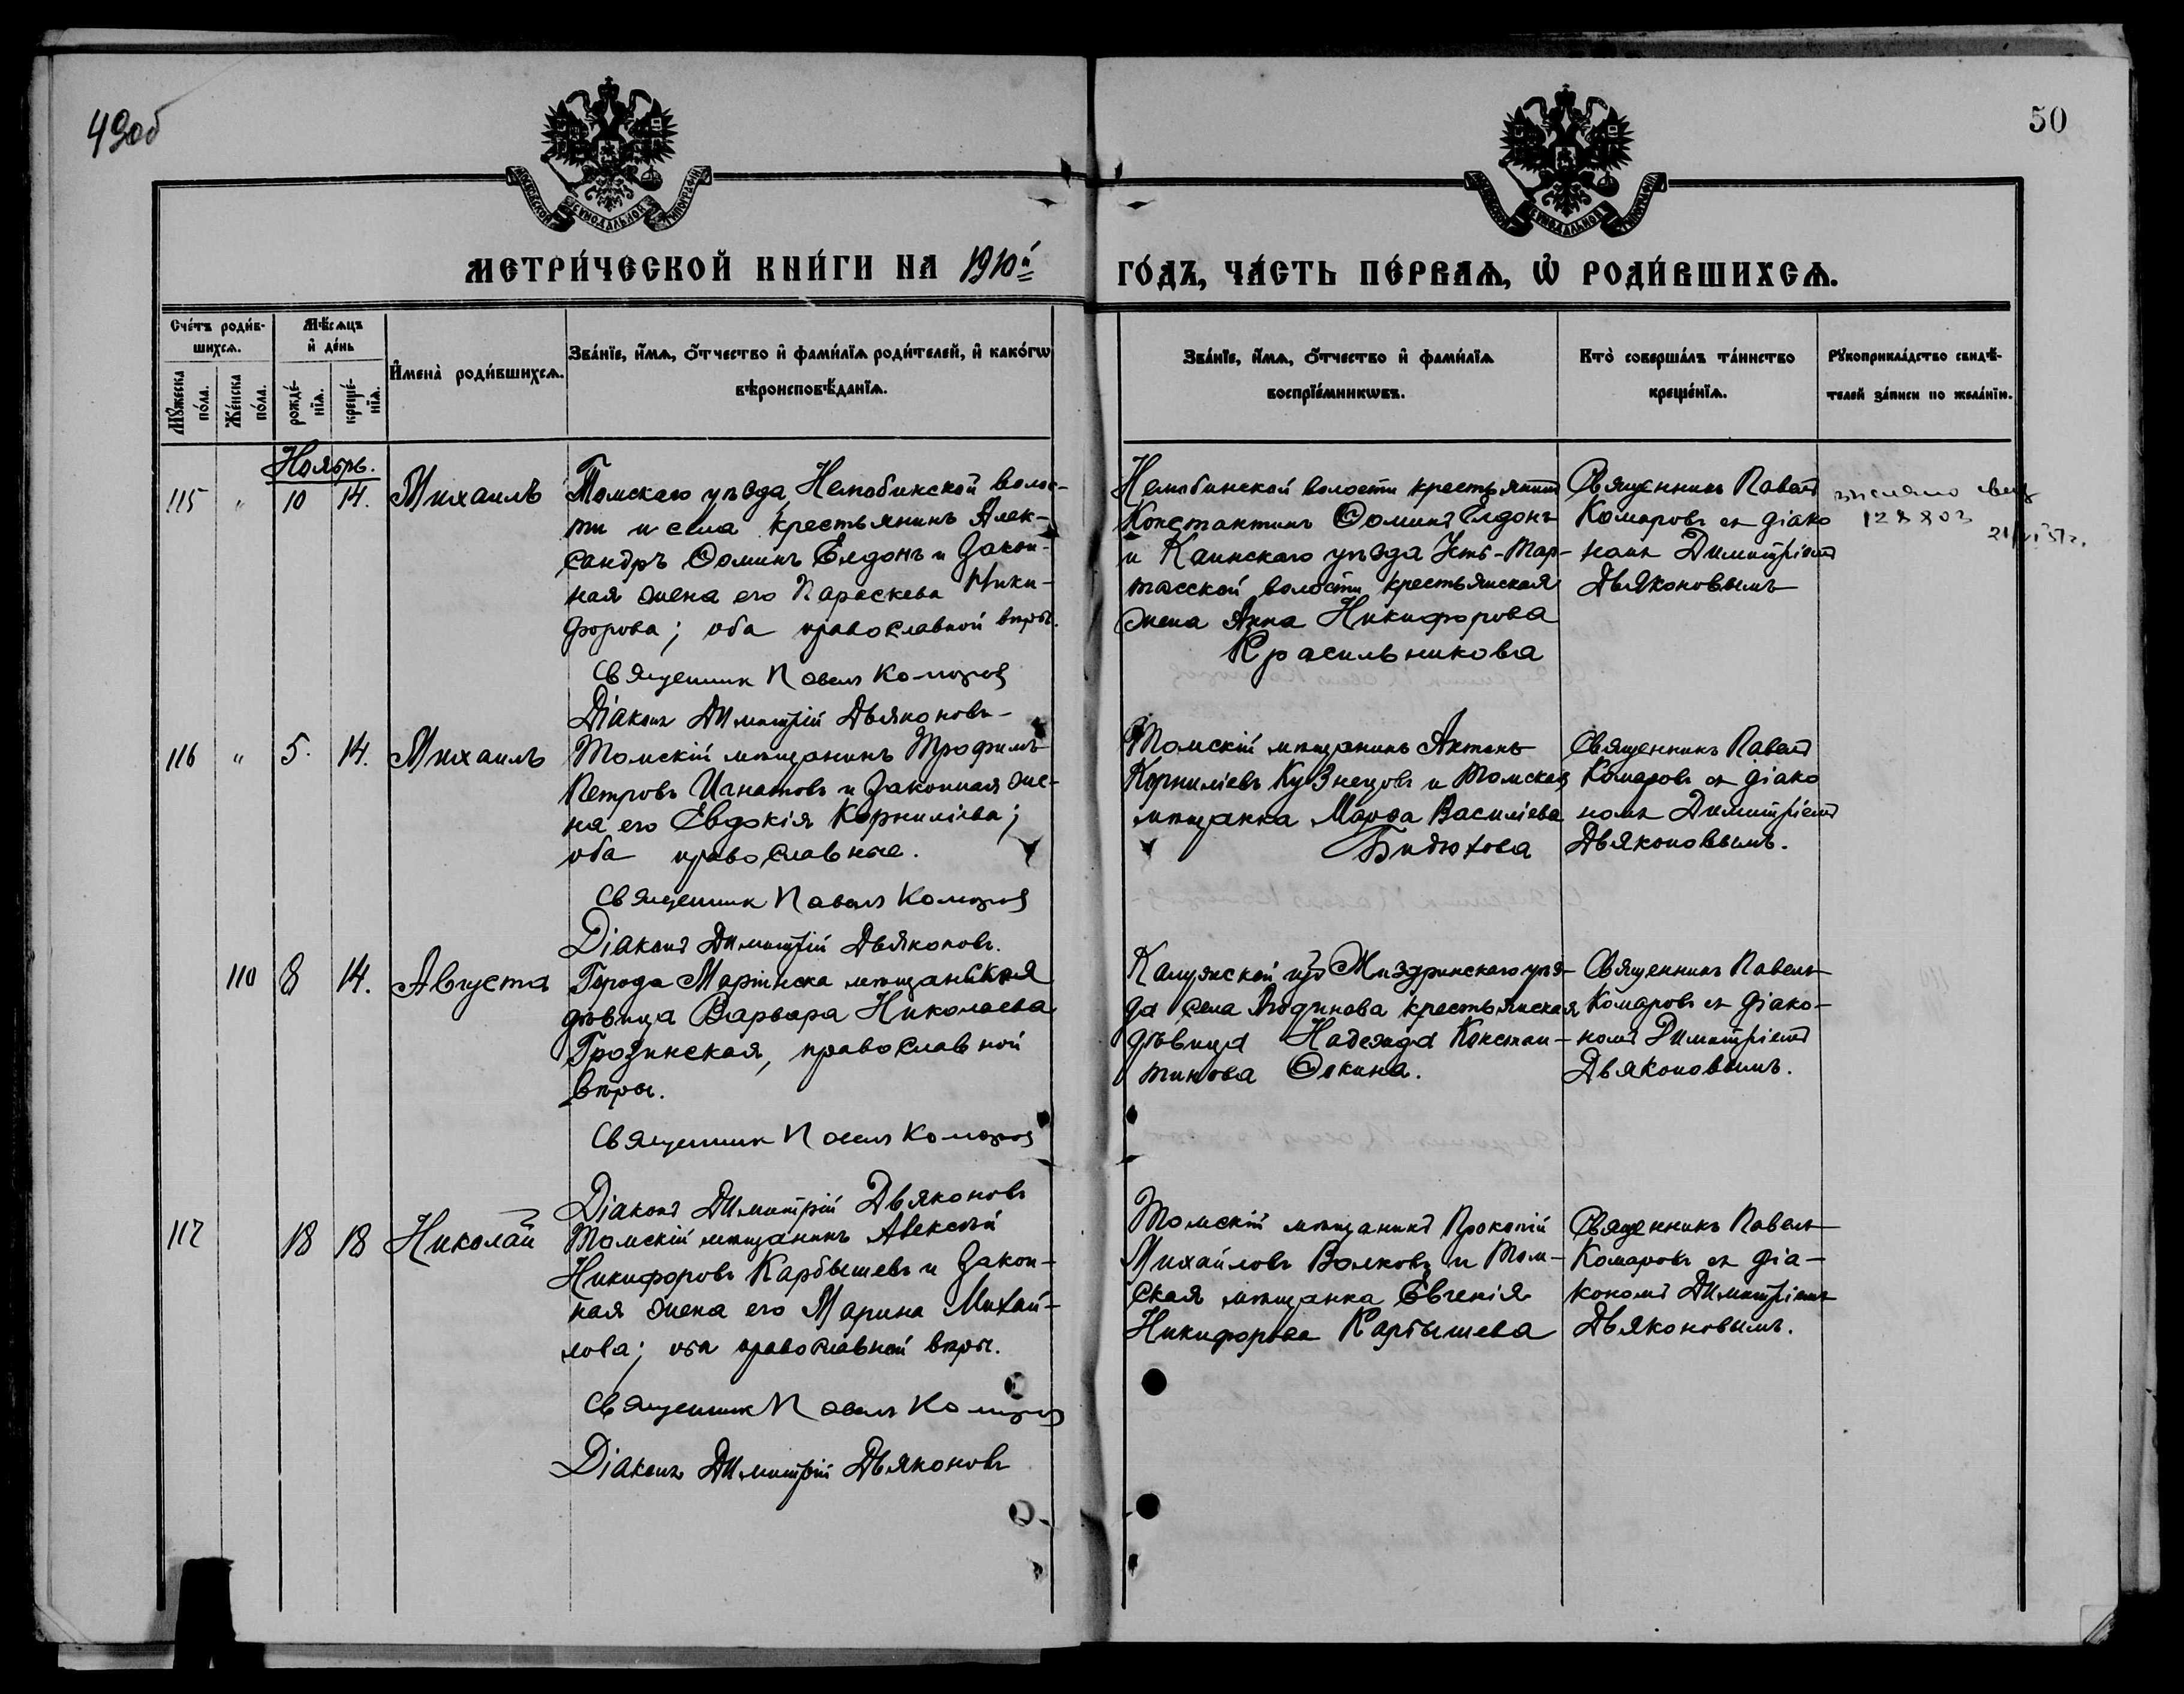 49об
50
МОСКОВСКОЙ СУНОДАЛЬНОЙ ТИПОГРАФІИ
МОСКОВСКОЙ СУНОДАЛЬНОЙ ТИПОГРАФІИ
МЕТРИ́ЧЕСКОЙ КНИ́ГИ НА 1910й ГО́ДЪ, ЧА́СТЬ ПЕ́РВАѦ, Ѡ РОДИ́ВШИХСѦ.
Сче́тъ роди́в-
шихсѧ.
Мꙋ́жеска по́ла.
Же́нска по́ла.
Мѣ́сѧцъ
и҆ де́нь
рожде́-
нїѧ.
креще́-
нїѧ.
И҆мена̀ роди́вшихсѧ.
Зва́нїе, и҆́мѧ, ѻ҆́тчество и҆ фами́лїѧ роди́телей, и҆ како́гѡ
вѣроисповѣ́данїѧ.
Зва́нїе, и҆́мѧ, ѻ҆́тчество и҆ фами́лїѧ
воспрїе́мникѡвъ.
Кто̀ соверша́лъ та́инство
креще́нїѧ.
Рꙋкоприкла́дство свидѣ́-
телей за́писи по жела́нїю.
Ноябрь.
115 " 10 14. Михаилъ
Томскаго уѣзда, Нелюбинской волос-
ти и села крестьянинъ Алек-
сандръ Ѳоминъ Елдонъ и закон-
ная жена его Параскева Ники-
форова; оба православной вѣры.
Священник Павел Комаров
Діаконъ Димитрій Дьяконовъ
Нелюбинской волости крестьянинъ
Константинъ Ѳоминъ Елдонъ
и Каинскаго уѣзда Усть-Тар-
тасской волости крестьянская
жена Анна Никифорова
Красильникова
Священникъ Павелъ
Комаровъ съ діако
номъ Димитріемъ
Дьяконовымъ
выслано свид
128803
116 " 5. 14. Михаилъ
Томскій мѣщанинъ Трофимъ
Петровъ Игнатовъ и законная же-
на его Евдокія Корниліева;
оба православные.
Священник Павел Комаров
Діаконъ Димитрій Дьяконовъ.
Томскій мѣщанинъ Антонъ
Корниліевъ Кузнецовъ и Томская
мѣщанка Марѳа Василіева
Бидюкова
Священникъ Павелъ
Комаровъ съ діако
номъ Димитріемъ
Дьяконовымъ.
110 8 14. Августа
Города Маріинска мѣщанская
дѣвица Варвара Николаева
Грозинская, православной
вѣры.
Священник Павел Комаров
Діаконъ Димитрій Дьяконовъ
Калужской губ Жиздринскаго уѣз-
да села Людинова крестьянская
дѣвица Надежда Констан-
тинова Ѳокина.
Священникъ Павелъ
Комаровъ съ діако-
номъ Димитріемъ
Дьяконовымъ.
117 18 18 Николай
Томскій мѣщанинъ Алексѣй
Никифоровъ Карбышевъ и закон-
ная жена его Марина Михай-
лова; оба православной вѣры.
Священник Павел Комаров
Діаконъ Димитрій Дьяконовъ
Томскій мѣщанинъ Прокопій
Михайловъ Волковъ и Том-
ская мѣщанка Евгенія
Никифорова Карбышева
Священникъ Павелъ
Комаровъ съ діа-
кономъ Димитріемъ
Дьяконовымъ.